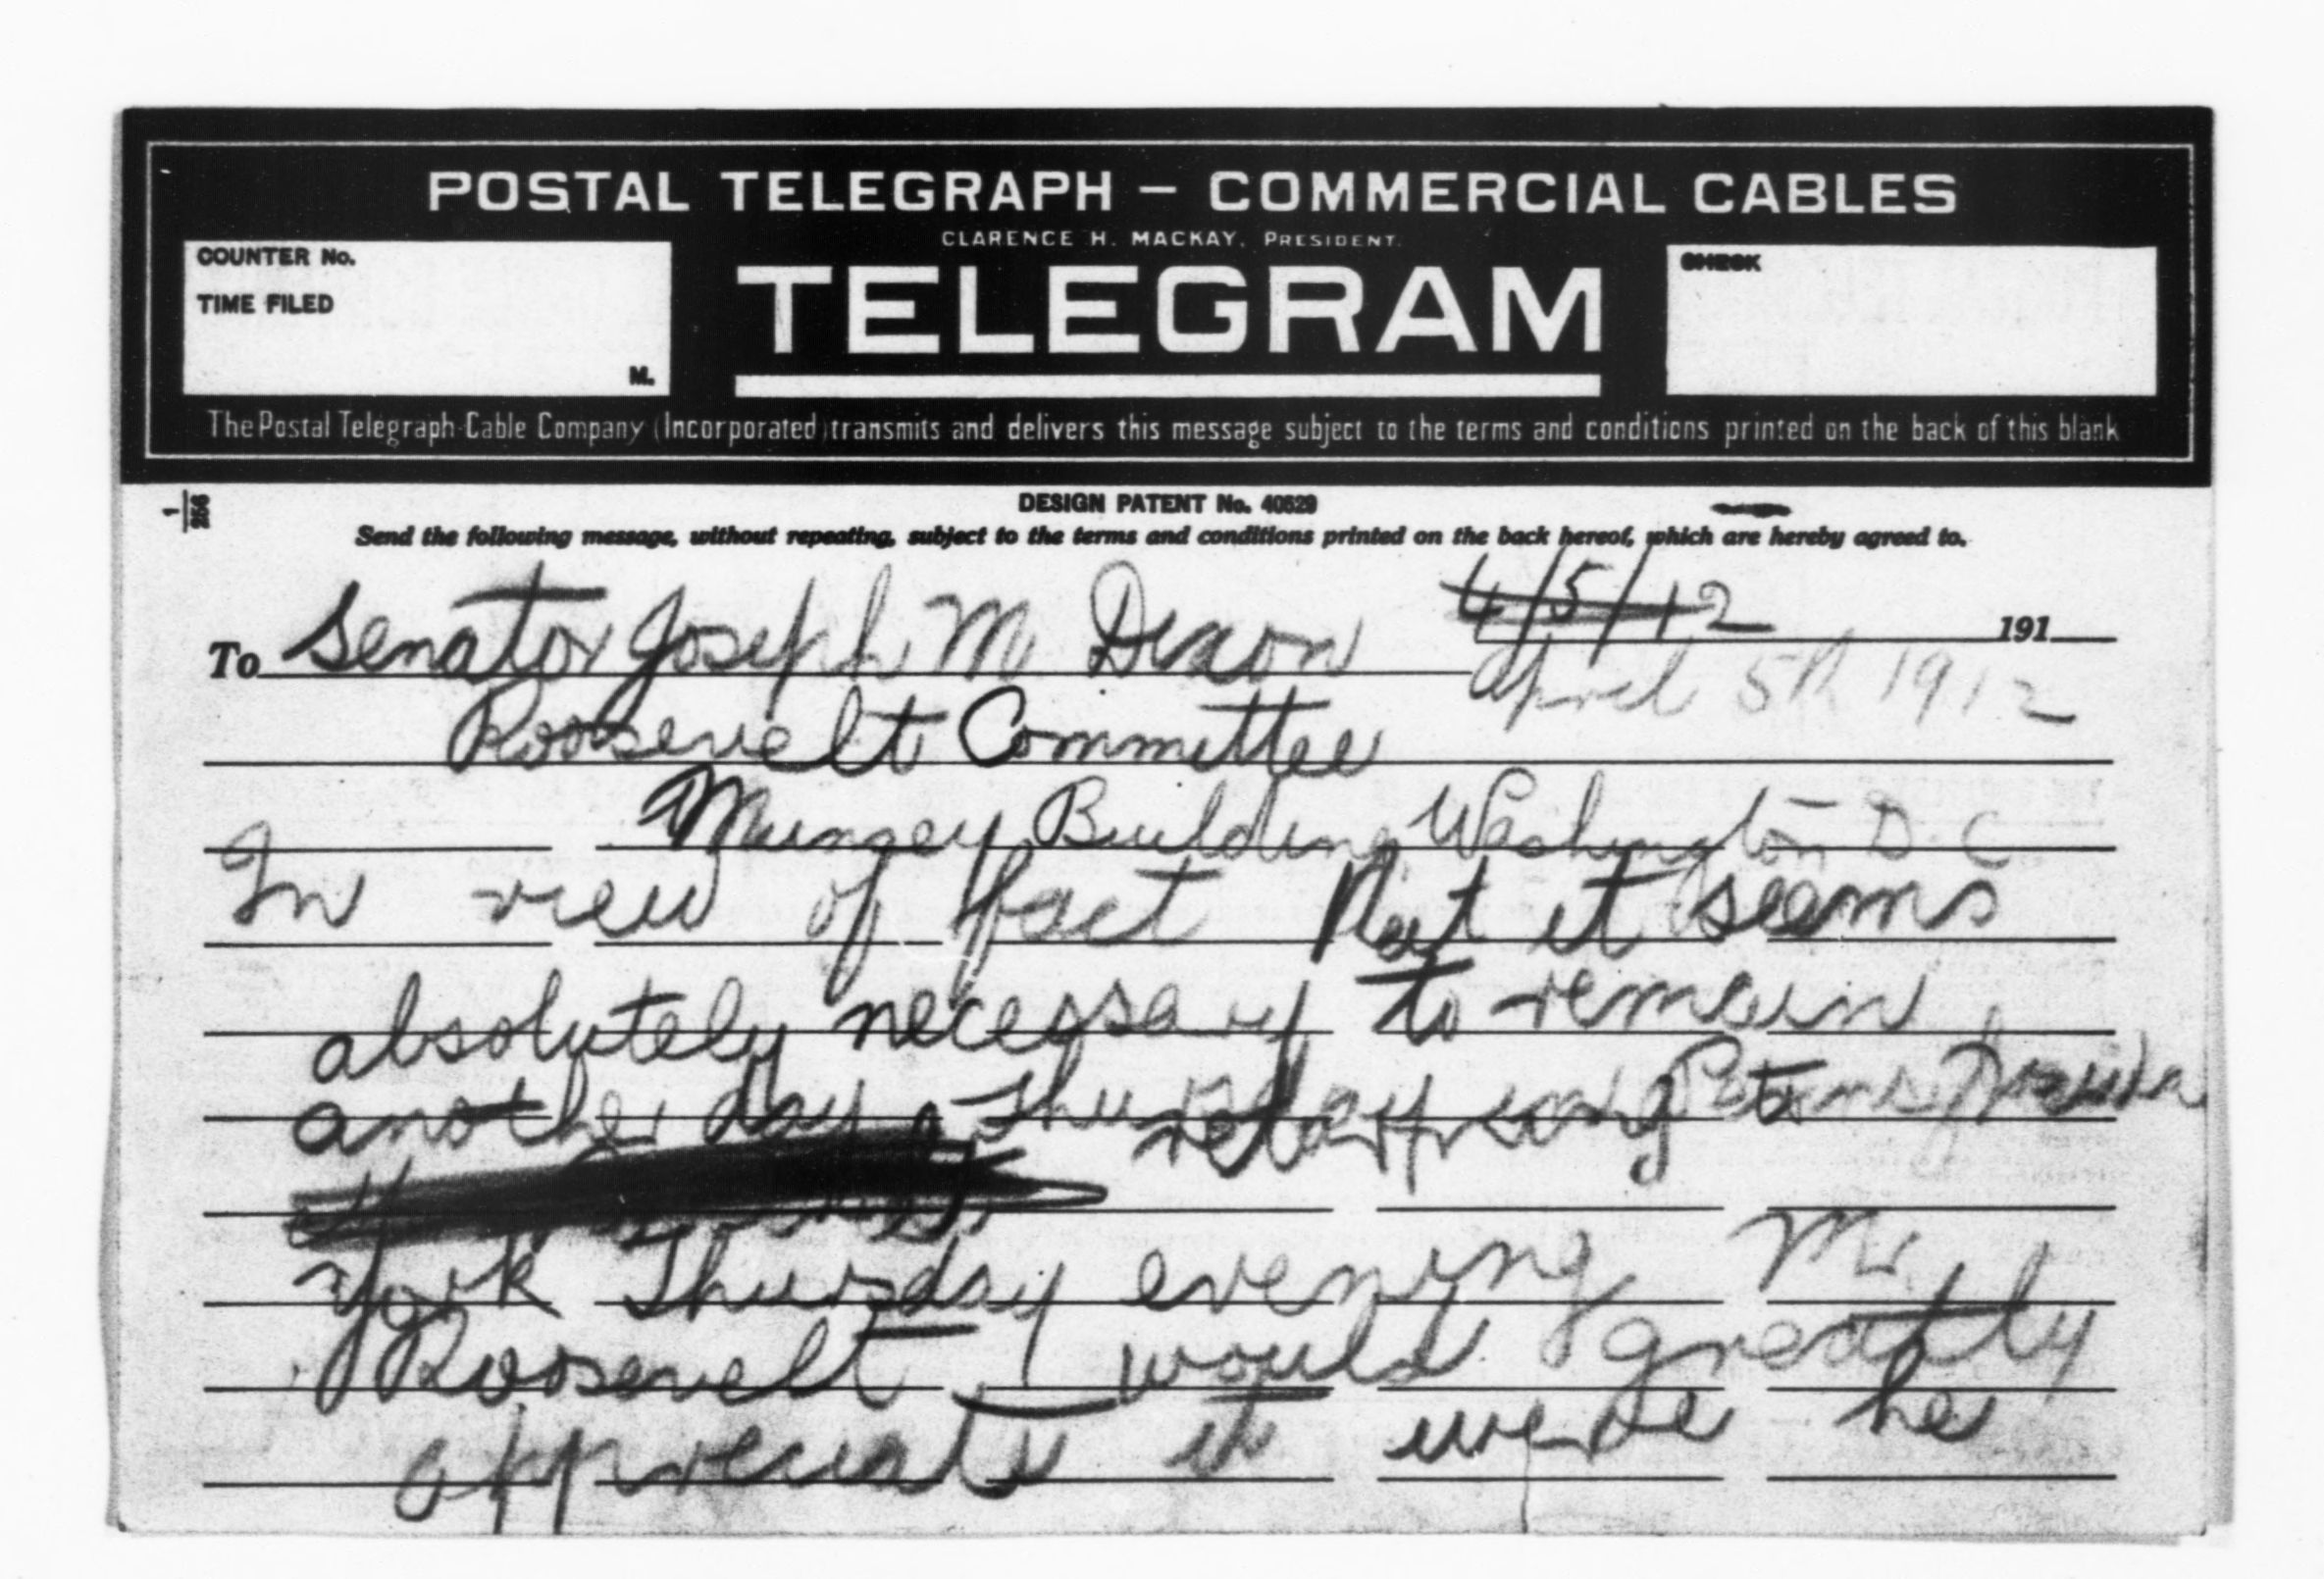 POSTAL TELEGRAPH – COMMERCIAL CABLES
CLARENCE H. MACKAY, PRESIDENT.
COUNTER No.
TIME FILED
M.
TELEGRAM
CHECK
The Postal Telegraph-Cable Company (Incorporated) transmits and delivers this message subject to the terms and conditions printed on the back of this blank
DESIGN PATENT No. 40529
Send the following message, without repeating, subject to the terms and conditions printed on the back hereof, which are hereby agreed to.
4/5/12 191
To Senator Joseph M Dixon
April 5th 1912
Roosevelt Committee
Munsey Building Washington D.C
In view of fact that it seems
absolutely necessary to remain
another day
York Thursday evening Mr
Roosevelt would greatly
appreciate it were he